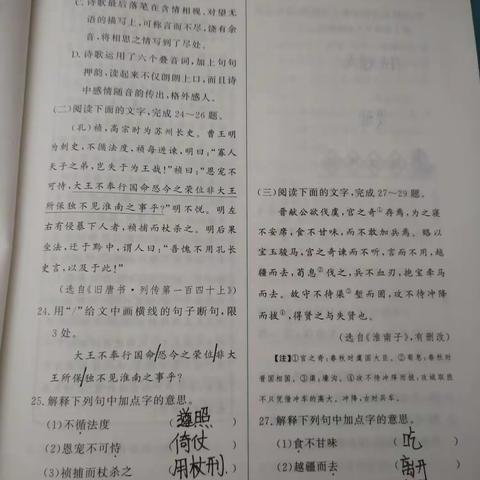 C. 诗歌最后落笔在含情相视、对望无
语的描写上,可称言而不尽,饶有余
音,将相思之情写到了尽处。
D. 诗歌运用了六个叠音词,加上句句
押韵,读起来不仅朗朗上口,而且诗
中感情随音韵传出,格外感人。
(二)阅读下面的文字,完成24~26题。
(孔)祯,高宗时为苏州长史。曹王明
为刺史,不循法度,祯每进谏,明曰:“寡人
天子之弟,岂失于为王哉!”祯曰:“恩宠不
可恃,大王不奉行国命恐今之荣位非大王
所保独不见淮南之事乎?”明不悦。明左
右有侵暴下人者,祯捕而杖杀之。明后果
坐法,迁于黔中,谓人曰:“吾愧不用孔长
史言,以及于此!”
(选自《旧唐书·列传第一百四十上》)
24. 用“/”给文中画横线的句子断句,限
3处。
大王不奉行国命/恐今之荣位/非大
王所保/独不见淮南之事乎?
25. 解释下列句中加点字的意思。
(1)不循法度 (遵照)
(2)恩宠不可恃 (倚仗)
(3)祯捕而杖杀之 (用杖刑)
(三)阅读下面的文字,完成27~29题。
晋献公欲伐虞,宫之奇①存焉,为之寝
不安席,食不甘味,而不敢加兵焉。赂以
宝玉骏马,宫之奇谏而不听,言而不用,越
疆而去,荀息②伐之,兵不血刃,抱宝牵马
而去。故守不待渠③堑而固,攻不待冲降
而拔④,得贤之与失贤也。
(选自《淮南子》,有删改)
【注】①宫之奇:春秋时虞国大臣。②荀息:春秋时
晋国相国。③渠:壕沟。④攻不待冲降而拔:攻城取胜
不只凭借冲车的高大。冲降:古时兵车。
27. 解释下列句中加点字的意思。
(1)食不甘味 (吃)
(2)越疆而去 (离开)